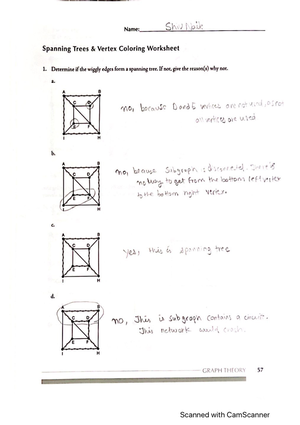 Name: Shiv Naik
Spanning Trees & Vertex Coloring Worksheet
1. Determine if the wiggly edges form a spanning tree. If not, give the reason(s) why not.
a.
A B
C D
E F
I H
no, because D and E vertices are not
all vertices are used
b.
A B
C D
E F
I H
no, because subgraph is disconnected. There is
no way to get from the bottom left vertex
to the bottom right vertex.
c.
A B
C D
E F
I H
yes, this is spanning tree
d.
A B
C D
E F
I H
no, This is subgraph contains a circuit.
This network
GRAPH THEORY 57
Scanned with CamScanner